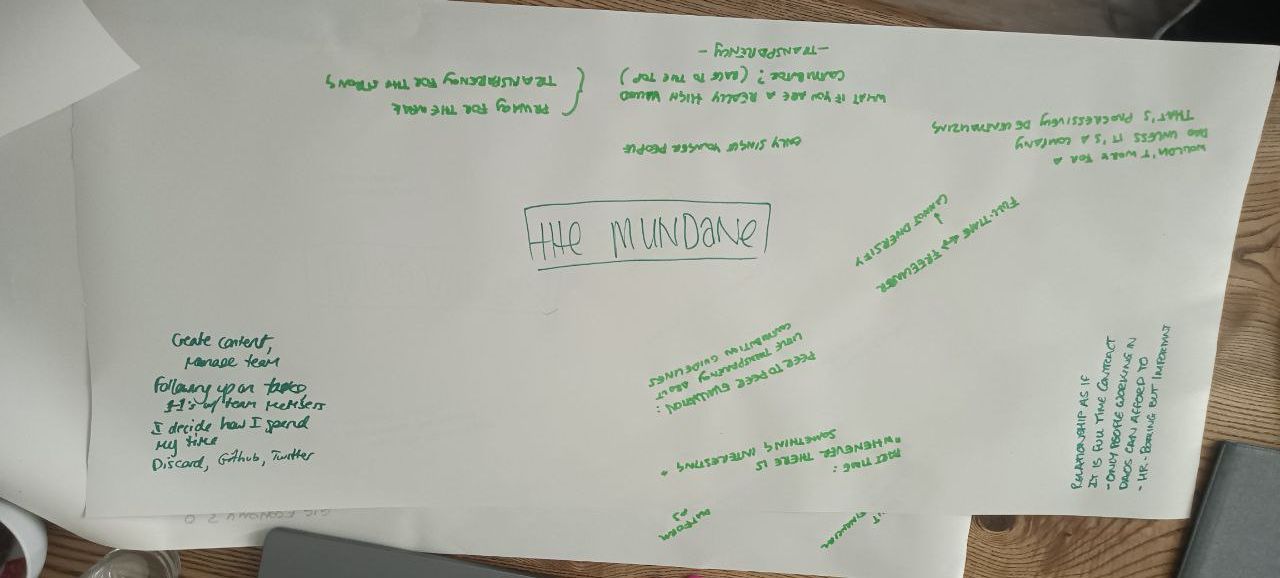 - TRANSPARENCY -
WHAT IF YOU ARE A REALLY HIGH VALUED
CONTRIBUTOR? (RACE TO THE TOP)
PRIVACY FOR THE WEAK
TRANSPARENCY FOR THE STRONG
ONLY SINGLE YOUNGER PEOPLE
WOULDN'T WORK FOR A
DAO UNLESS IT'S A COMPANY
THAT'S PROGRESSIVELY DECENTRALIZING
THE MUNDANE
FULL-TIME FREELANCER
↓
CANNOT DIVERSIFY
Create content,
Manage team
Following up on tasks
1-1's w/ team members
I decide how I spend
my time
Discord, Github, Twitter
PEER TO PEER EVALUATION:
LITTLE TRANSPARENCY ABOUT
CONTRIBUTION GUIDELINES
MEETING:
"WHENEVER THERE IS
SOMETHING INTERESTING"
RELATIONSHIP AS IF
IT IS FULL TIME CONTRACT
- ONLY PEOPLE WORKING IN
DAOS CAN AFFORD TO
- HR - BORING BUT IMPORTANT
PLATFORM
GIG ECONOMY 2.0